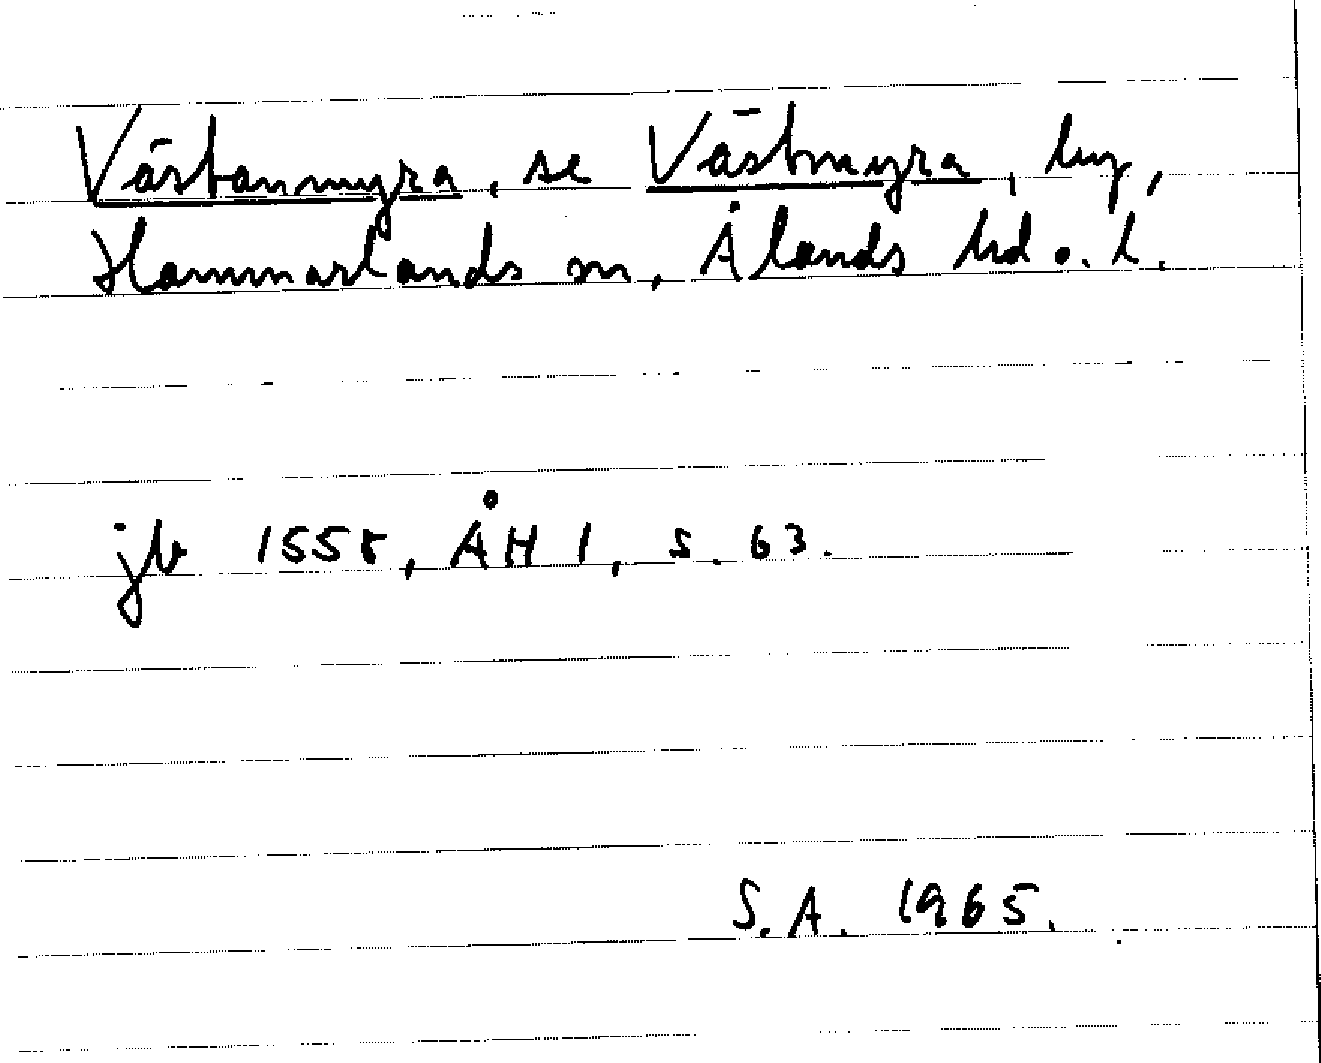 Västanmyra, se Västmyra, by,
Hammarlands sn, Ålands hd o. l.
jb 1558, ÅH 1, s. 63.
S.A. 1965.